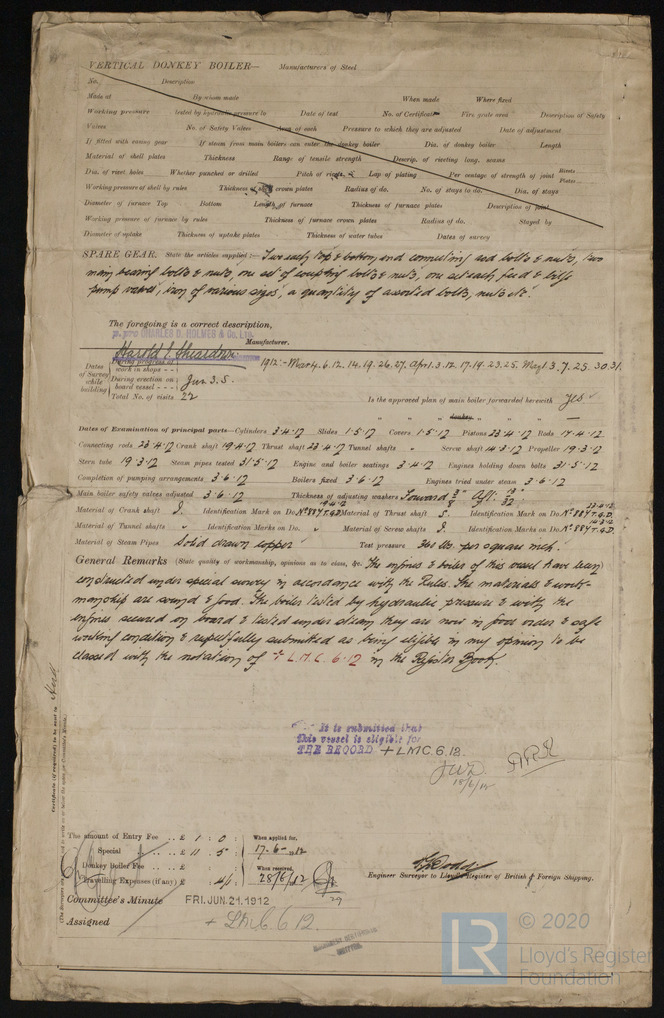 VERTICAL DONKEY BOILER— Manufacturers of Steel
No. Description
Made at By whom made When made Where fixed
Working pressure tested by hydraulic pressure to Date of test No. of Certificate Fire grate area Description of Safety
Valves No. of Safety Valves Area of each Pressure to which they are adjusted Date of adjustment
If fitted with easing gear If steam from main boilers can enter the donkey boiler Dia. of donkey boiler Length
Material of shell plates Thickness Range of tensile strength Descrip. of riveting long. seams
Dia. of rivet holes Whether punched or drilled Pitch of rivets Lap of plating Per centage of strength of joint Rivets Plates
Working pressure of shell by rules Thickness of shell crown plates Radius of do. No. of stays to do. Dia. of stays
Diameter of furnace Top Bottom Length of furnace Thickness of furnace plates Description of joint
Working pressure of furnace by rules Thickness of furnace crown plates Radius of do. Stayed by
Diameter of uptake Thickness of uptake plates Thickness of water tubes Dates of survey
SPARE GEAR. State the articles supplied :— Two each top & bottom end connecting rod bolts & nuts, two
main bearing bolts & nuts, one set of coupling bolts & nuts, one set each feed & bilge
pump valves, iron of various sizes, a quantity of assorted bolts, nuts etc.
The foregoing is a correct description,
p. pro CHARLES D. HOLMES & Co. Ltd.
Manufacturer.
Harold E. Sheardown
Dates of Survey while building
During progress of work in shops - - 1912 :- Mar 4. 6. 12. 14. 19. 26. 27. Apr 1. 3. 12. 17. 19. 23. 25. May 1. 3. 7. 25. 30. 31.
During erection on board vessel - - - Jun 3. 5.
Total No. of visits 22
Is the approved plan of main boiler forwarded herewith Yes
" " " donkey " " " —
Dates of Examination of principal parts—Cylinders 3·4·12 Slides 1·5·12 Covers 1·5·12 Pistons 23·4·12 Rods 17·4·12
Connecting rods 23·4·12 Crank shaft 19·4·12 Thrust shaft 23·4·12 Tunnel shafts " Screw shaft 14·3·12 Propeller 19·3·12
Stern tube 19·3·12 Steam pipes tested 31·5·12 Engine and boiler seatings 3·4·12 Engines holding down bolts 31·5·12
Completion of pumping arrangements 3·6·12 Boilers fixed 3·6·12 Engines tried under steam 3·6·12
Main boiler safety valves adjusted 3·6·12 Thickness of adjusting washers Forward 3/8" Aft 13/32"
Material of Crank shaft S. Identification Mark on Do. No 887 T.G.D. 19·4·12 Material of Thrust shaft S. Identification Mark on Do. No 887 T.G.D. 23·4·12
Material of Tunnel shafts " Identification Marks on Do. " Material of Screw shafts S. Identification Marks on Do. No 887 T.G.D. 14·3·12
Material of Steam Pipes Solid drawn copper Test pressure 360 lbs. per square inch.
General Remarks (State quality of workmanship, opinions as to class, &c. The engines & boilers of this vessel have been
constructed under special survey in accordance with the Rules. The materials & work-
manship are sound & good. The boiler tested by hydraulic pressure & with the
engines secured on board & tested under steam they are now in good order & safe
working condition & respectfully submitted as being eligible in my opinion to be
classed with the notation of + L.M.C. 6·12 in the Register Book.
Certificate (if required) to be sent to Hull
It is submitted that
this vessel is eligible for
THE RECORD + LMC. 6.12.
J.W.D.
18/6/12
The amount of Entry Fee .. £ 1 : 0 : When applied for,
Special .. £ 11 : 5 : 17·6·1912
Donkey Boiler Fee .. £ : : When received,
Travelling Expenses (if any) £ : 4/1 : 28/6/12
Engineer Surveyor to Lloyd's Register of British & Foreign Shipping.
Committee's Minute FRI. JUN. 21. 1912
Assigned + LMC 6.12.
LR © 2020
Lloyd's Register
Foundation